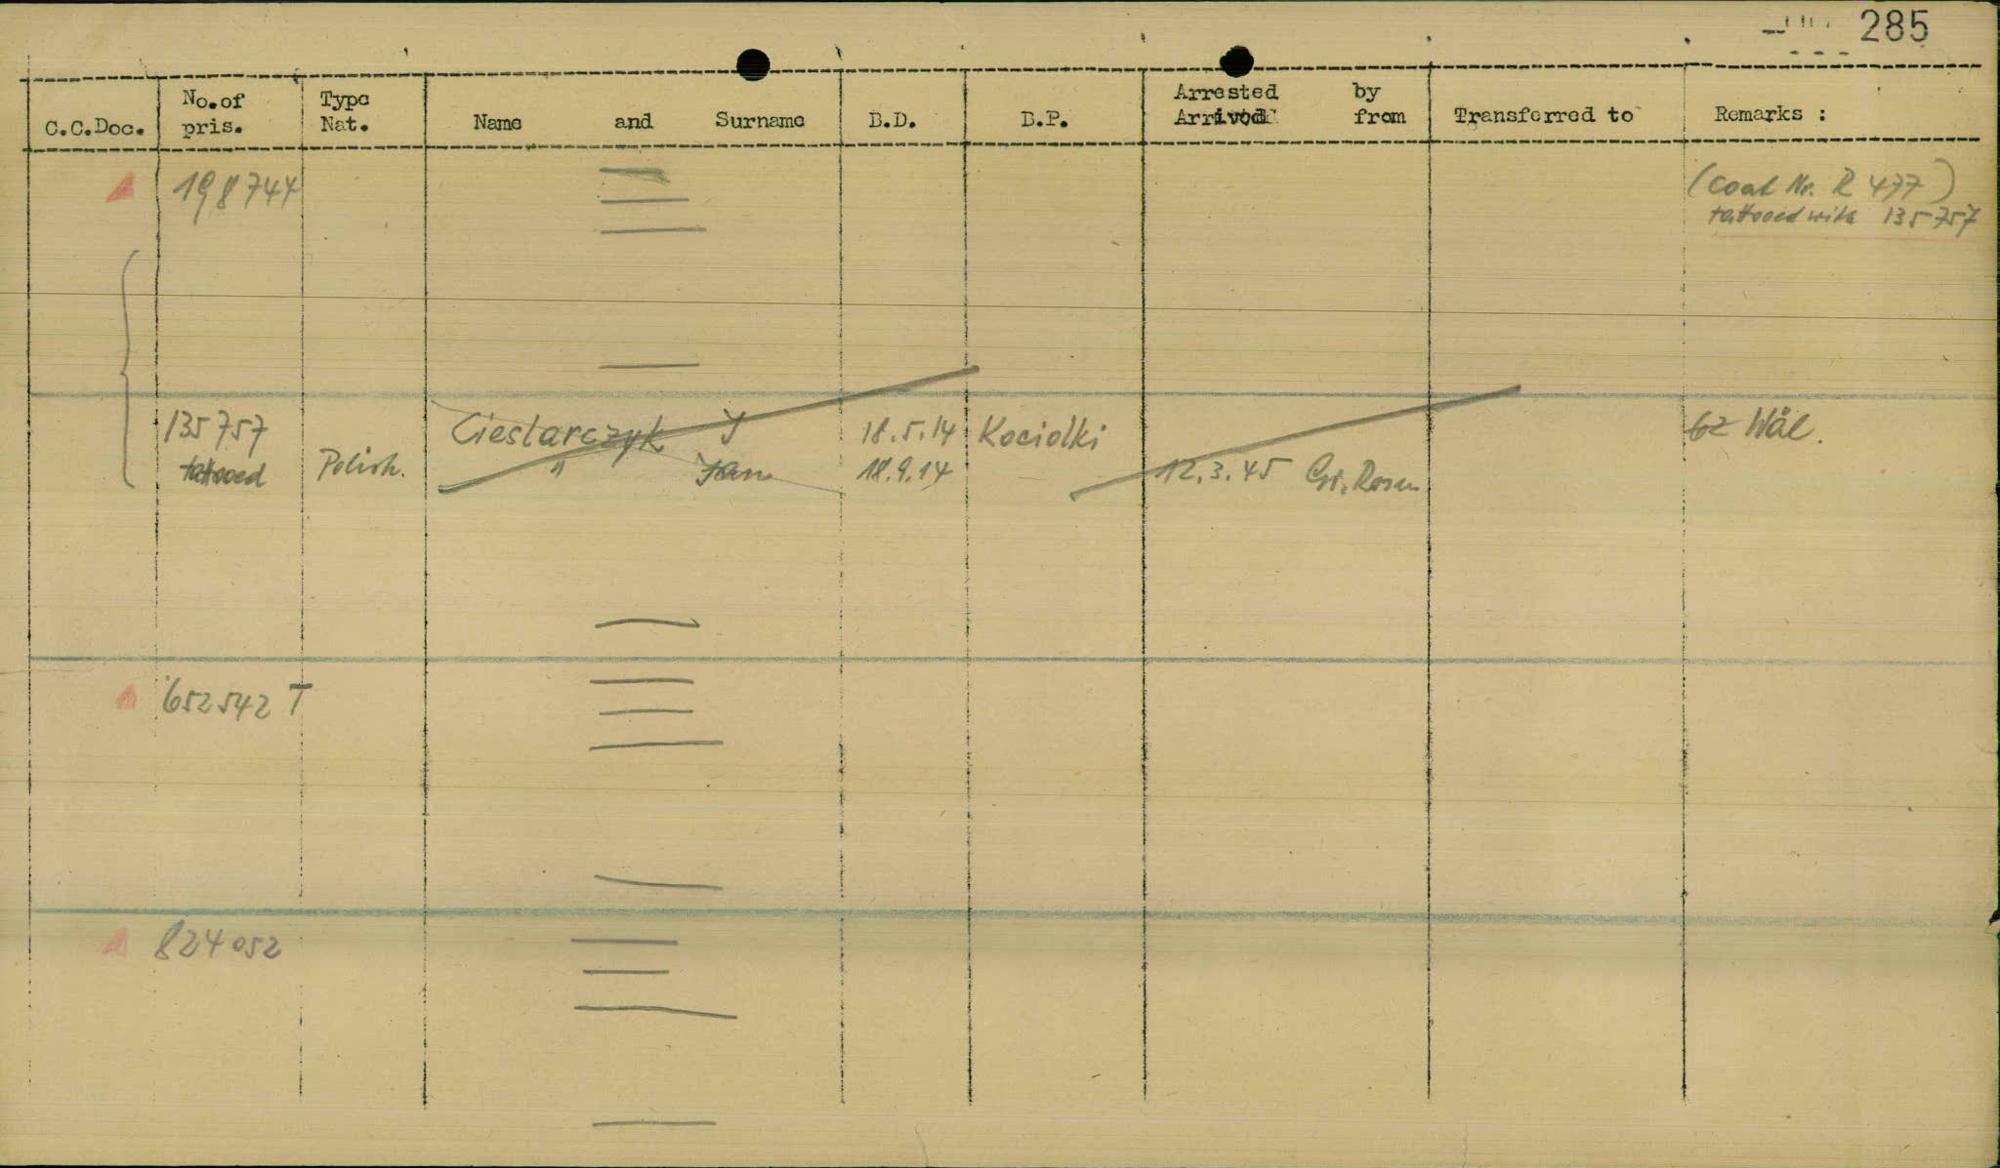 285
C.C.Doc. No.of pris. Type Nat. Name and Surname B.D. B.P. Arrested by Arrived from Transferred to Remarks :
198744 (Coat Nr. R 477)
tattooed with 135757
135757 Cieslarczyk J 18.5.14 Kociolki
tattooed Polish. " Jan 18.9.14 12.3.45 Gr. Rosen
652542 T
824052